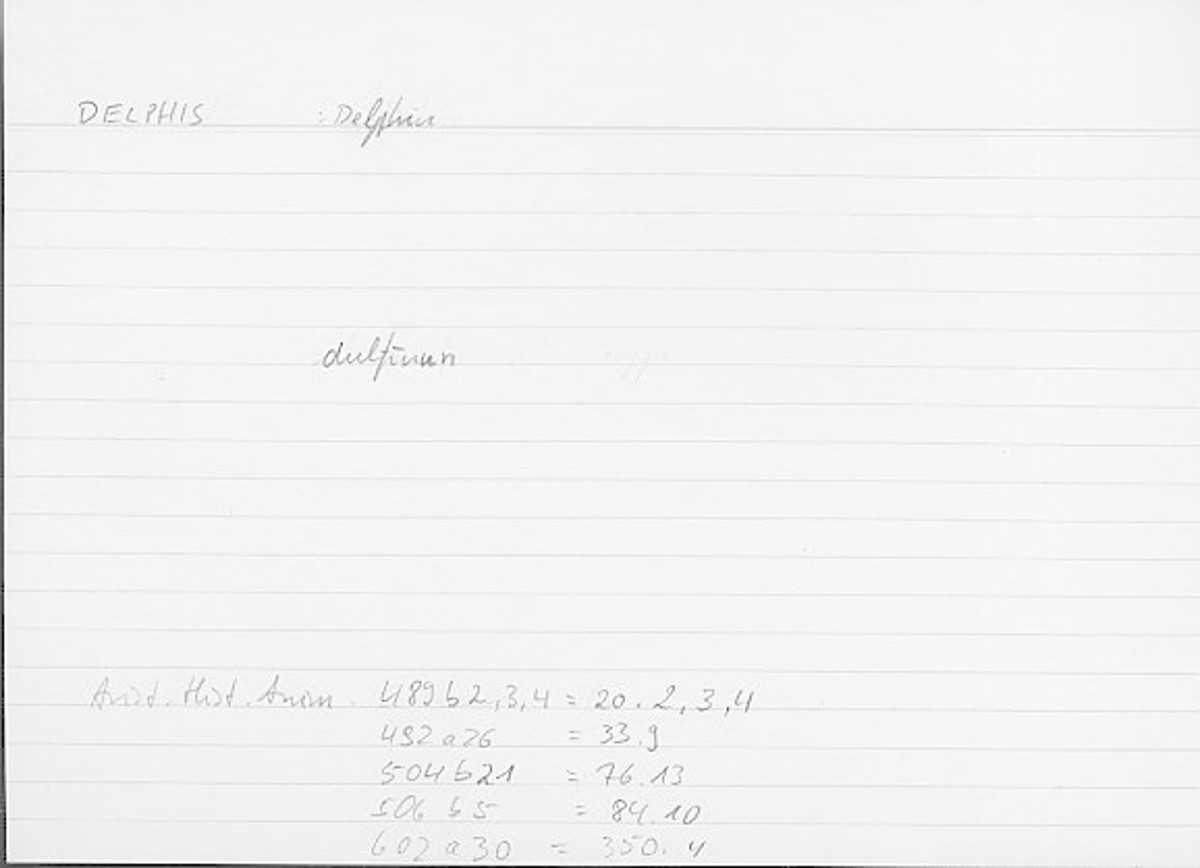 DELPHIS : Delphin
dulfīnun
Arist. Hist. Anim. 489b2,3,4 = 20.2,3,4
492a26 = 33.9
504b21 = 76.13
506b5 = 84.10
602a30 = 350.4